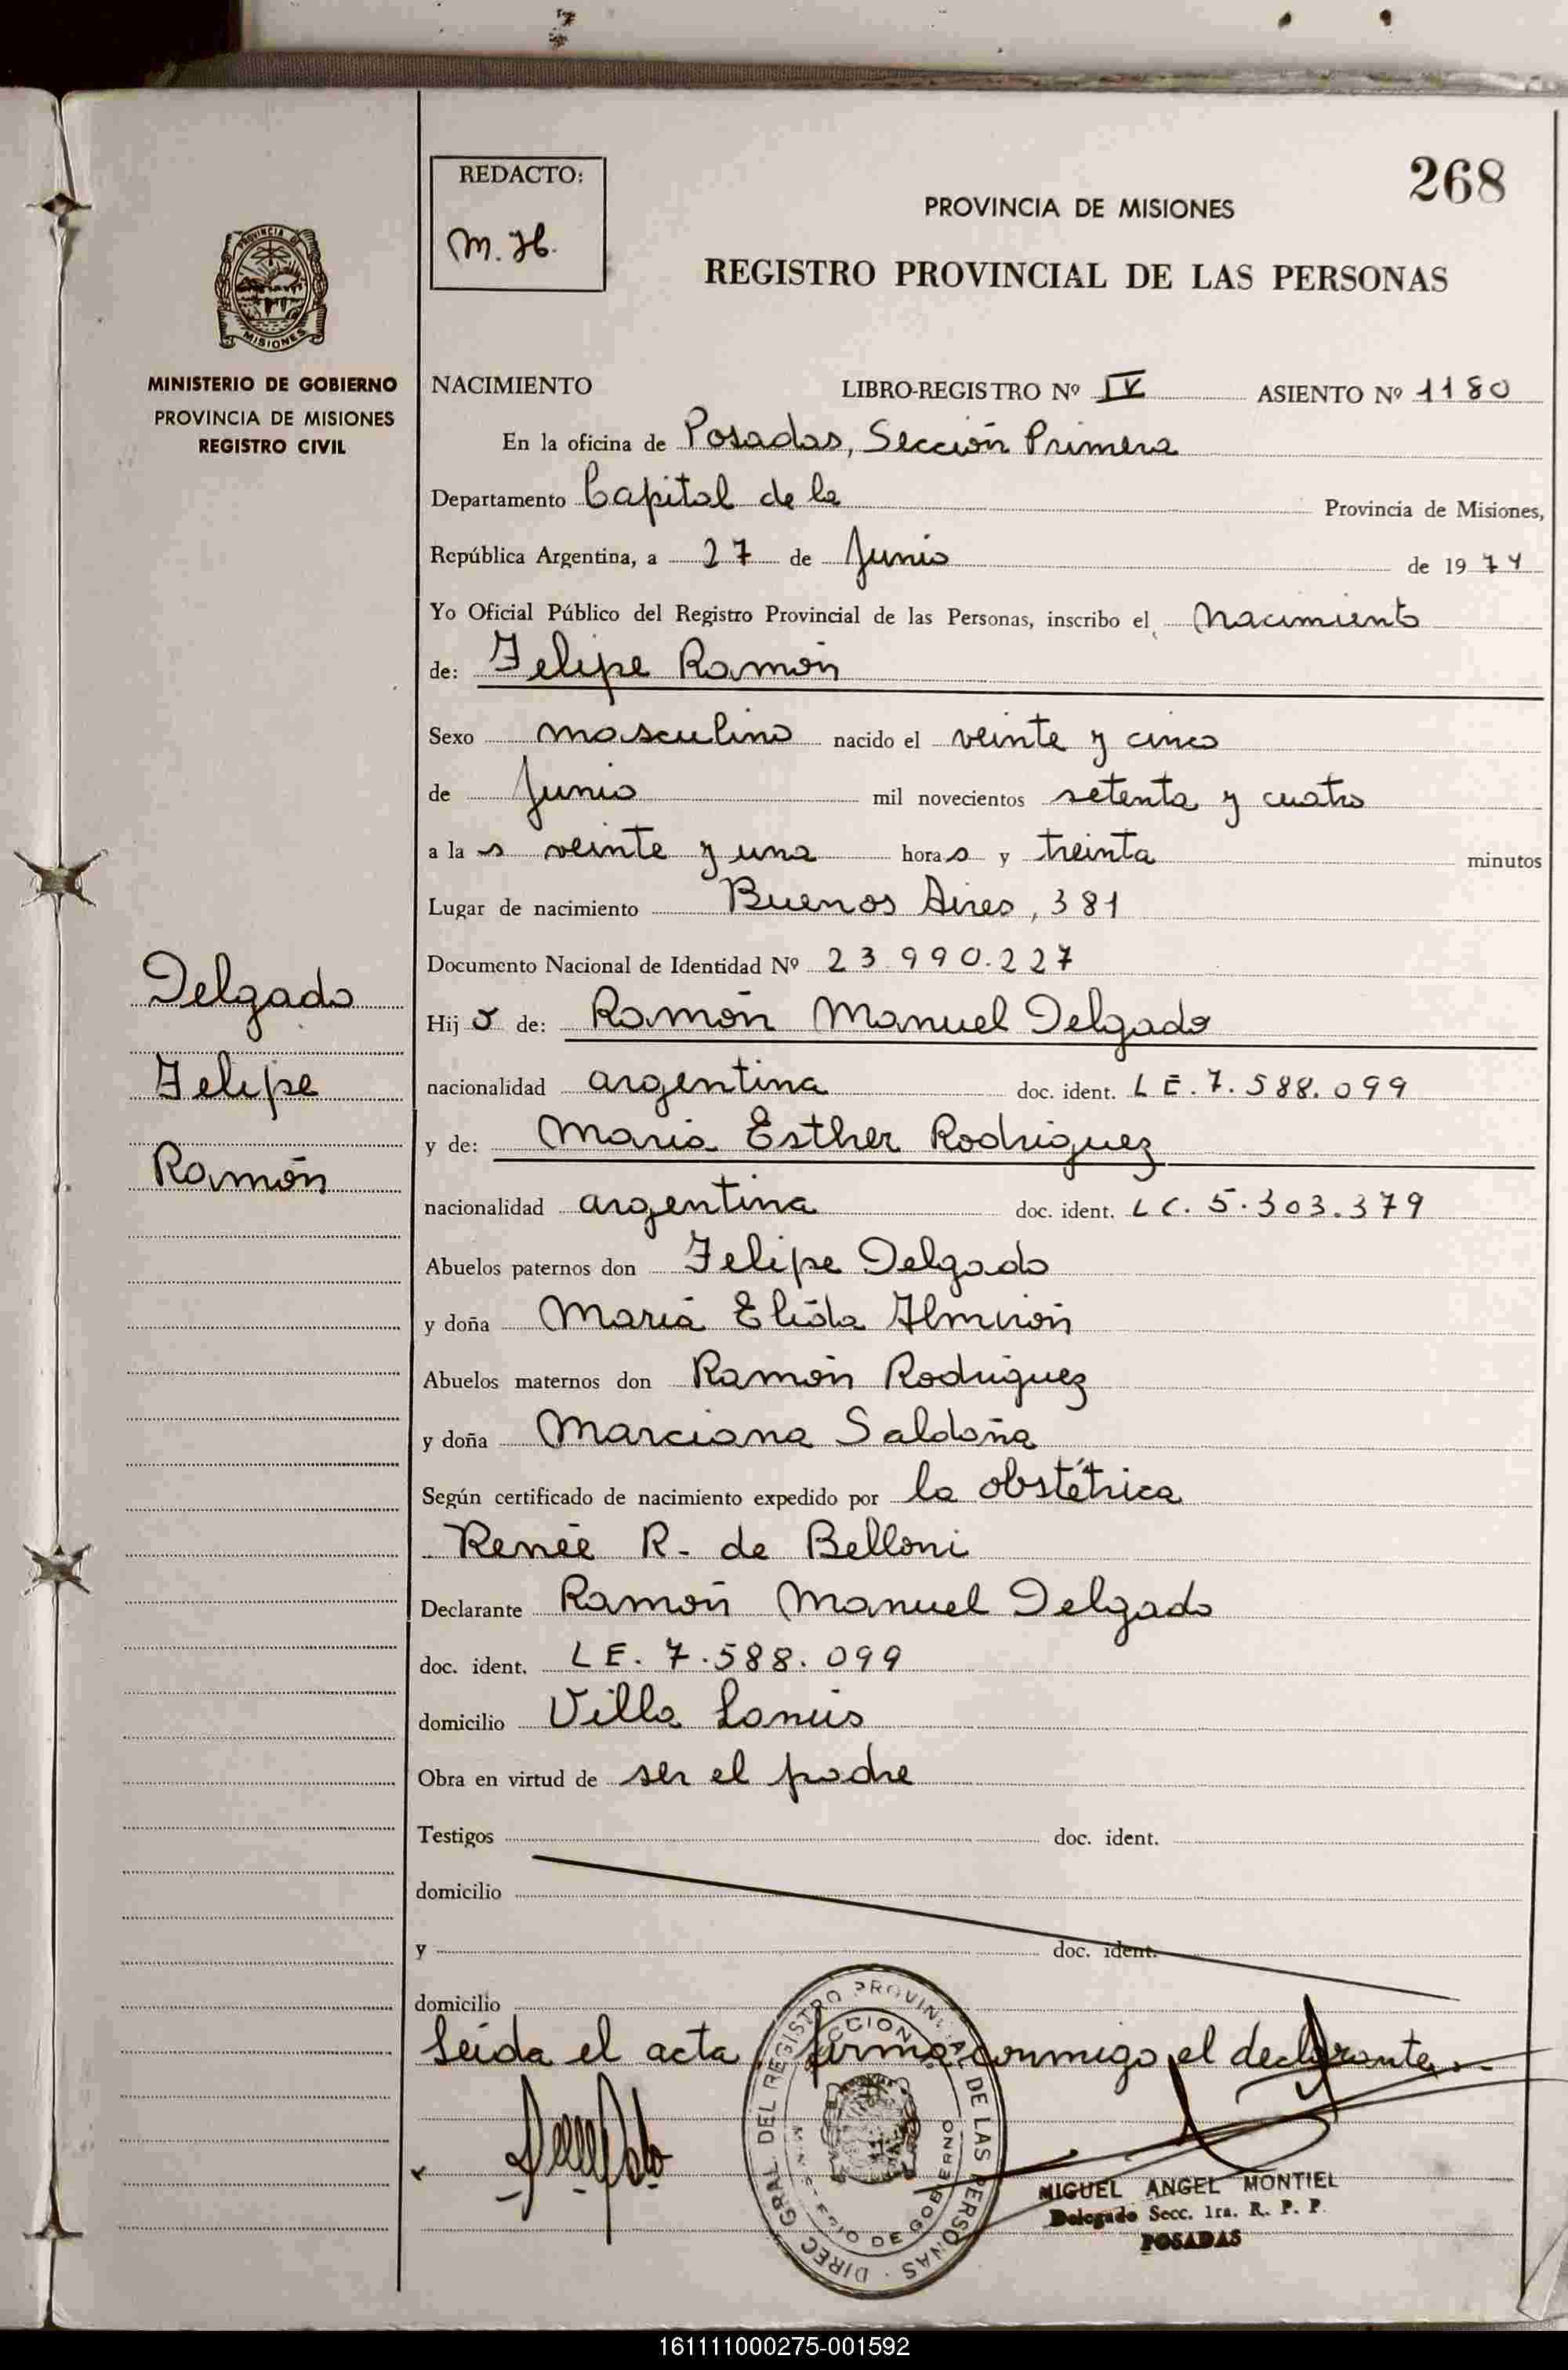 268
REDACTO:
M. H.
PROVINCIA DE MISIONES
REGISTRO PROVINCIAL DE LAS PERSONAS
PROVINCIA DE
MISIONES
MINISTERIO DE GOBIERNO
PROVINCIA DE MISIONES
REGISTRO CIVIL
NACIMIENTO LIBRO-REGISTRO Nº IV ASIENTO Nº 1180
En la oficina de Posadas, Sección Primera
Departamento Capital de la Provincia de Misiones,
República Argentina, a 27 de Junio de 1974
Yo Oficial Público del Registro Provincial de las Personas, inscribo el Nacimiento
de: Felipe Ramón
Sexo masculino nacido el veinte y cinco
de Junio mil novecientos setenta y cuatro
a las veinte y una horas y treinta minutos
Lugar de nacimiento Buenos Aires, 381
Documento Nacional de Identidad Nº 23.990.227
Delgado
Felipe
Ramón
Hijo de: Ramón Manuel Delgado
nacionalidad argentina doc. ident. LE. 7.588.099
y de: María Esther Rodriguez
nacionalidad argentina doc. ident. LC. 5.303.379
Abuelos paternos don Felipe Delgado
y doña María Elida Almirón
Abuelos maternos don Ramón Rodriguez
y doña Marciana Saldaña
Según certificado de nacimiento expedido por la obstétrica
Renée R. de Belloni
Declarante Ramón Manuel Delgado
doc. ident. LE. 7.588.099
domicilio Villa Lanús
Obra en virtud de ser el padre
Testigos doc. ident.
domicilio
y doc. ident.
domicilio
Leida el acta firma conmigo el declarante
DIREC GRAL DEL REGISTRO PROVINCIAL DE LAS PERSONAS
MINISTERIO DE GOBIERNO
MIGUEL ANGEL MONTIEL
Delegado Secc. 1ra. R. P. P.
POSADAS
161111000275-001592